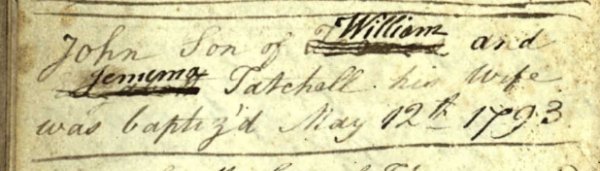 John Son of William and
Jemima Tatchell his Wife
was baptiz'd May 12th 1793